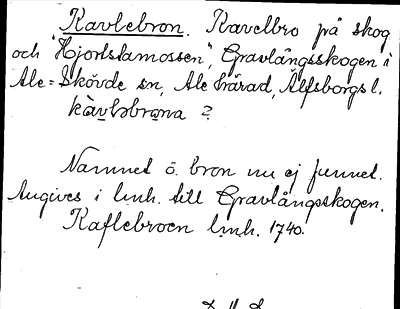 Kavlebron. Kavelbro på skog
och "Hjortstamossen", Gravlångsskogen i
Ale-Skövde sn, Ale härad, Älfsborgs l.
kàvləbrωna ?
Namnet o. bron nu ej funnet.
Angives i lmh. till Gravlångskogen.
Kaflebroen lmh. 1740.